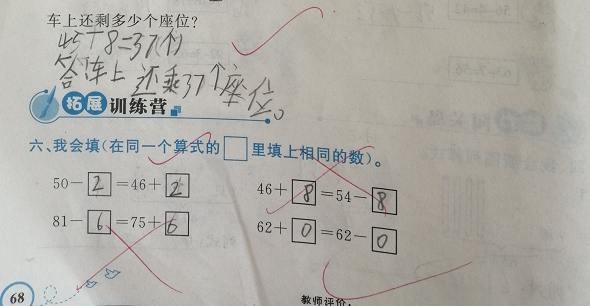 车上还剩多少个座位?
45+8=37(个)
答:车上还剩37个座位。
拓展训练营
六、我会填(在同一个算式的□里填上相同的数)。
50-2=46+2 46+8=54-8
81-6=75+6 62+0=62-0
68 教师评价: